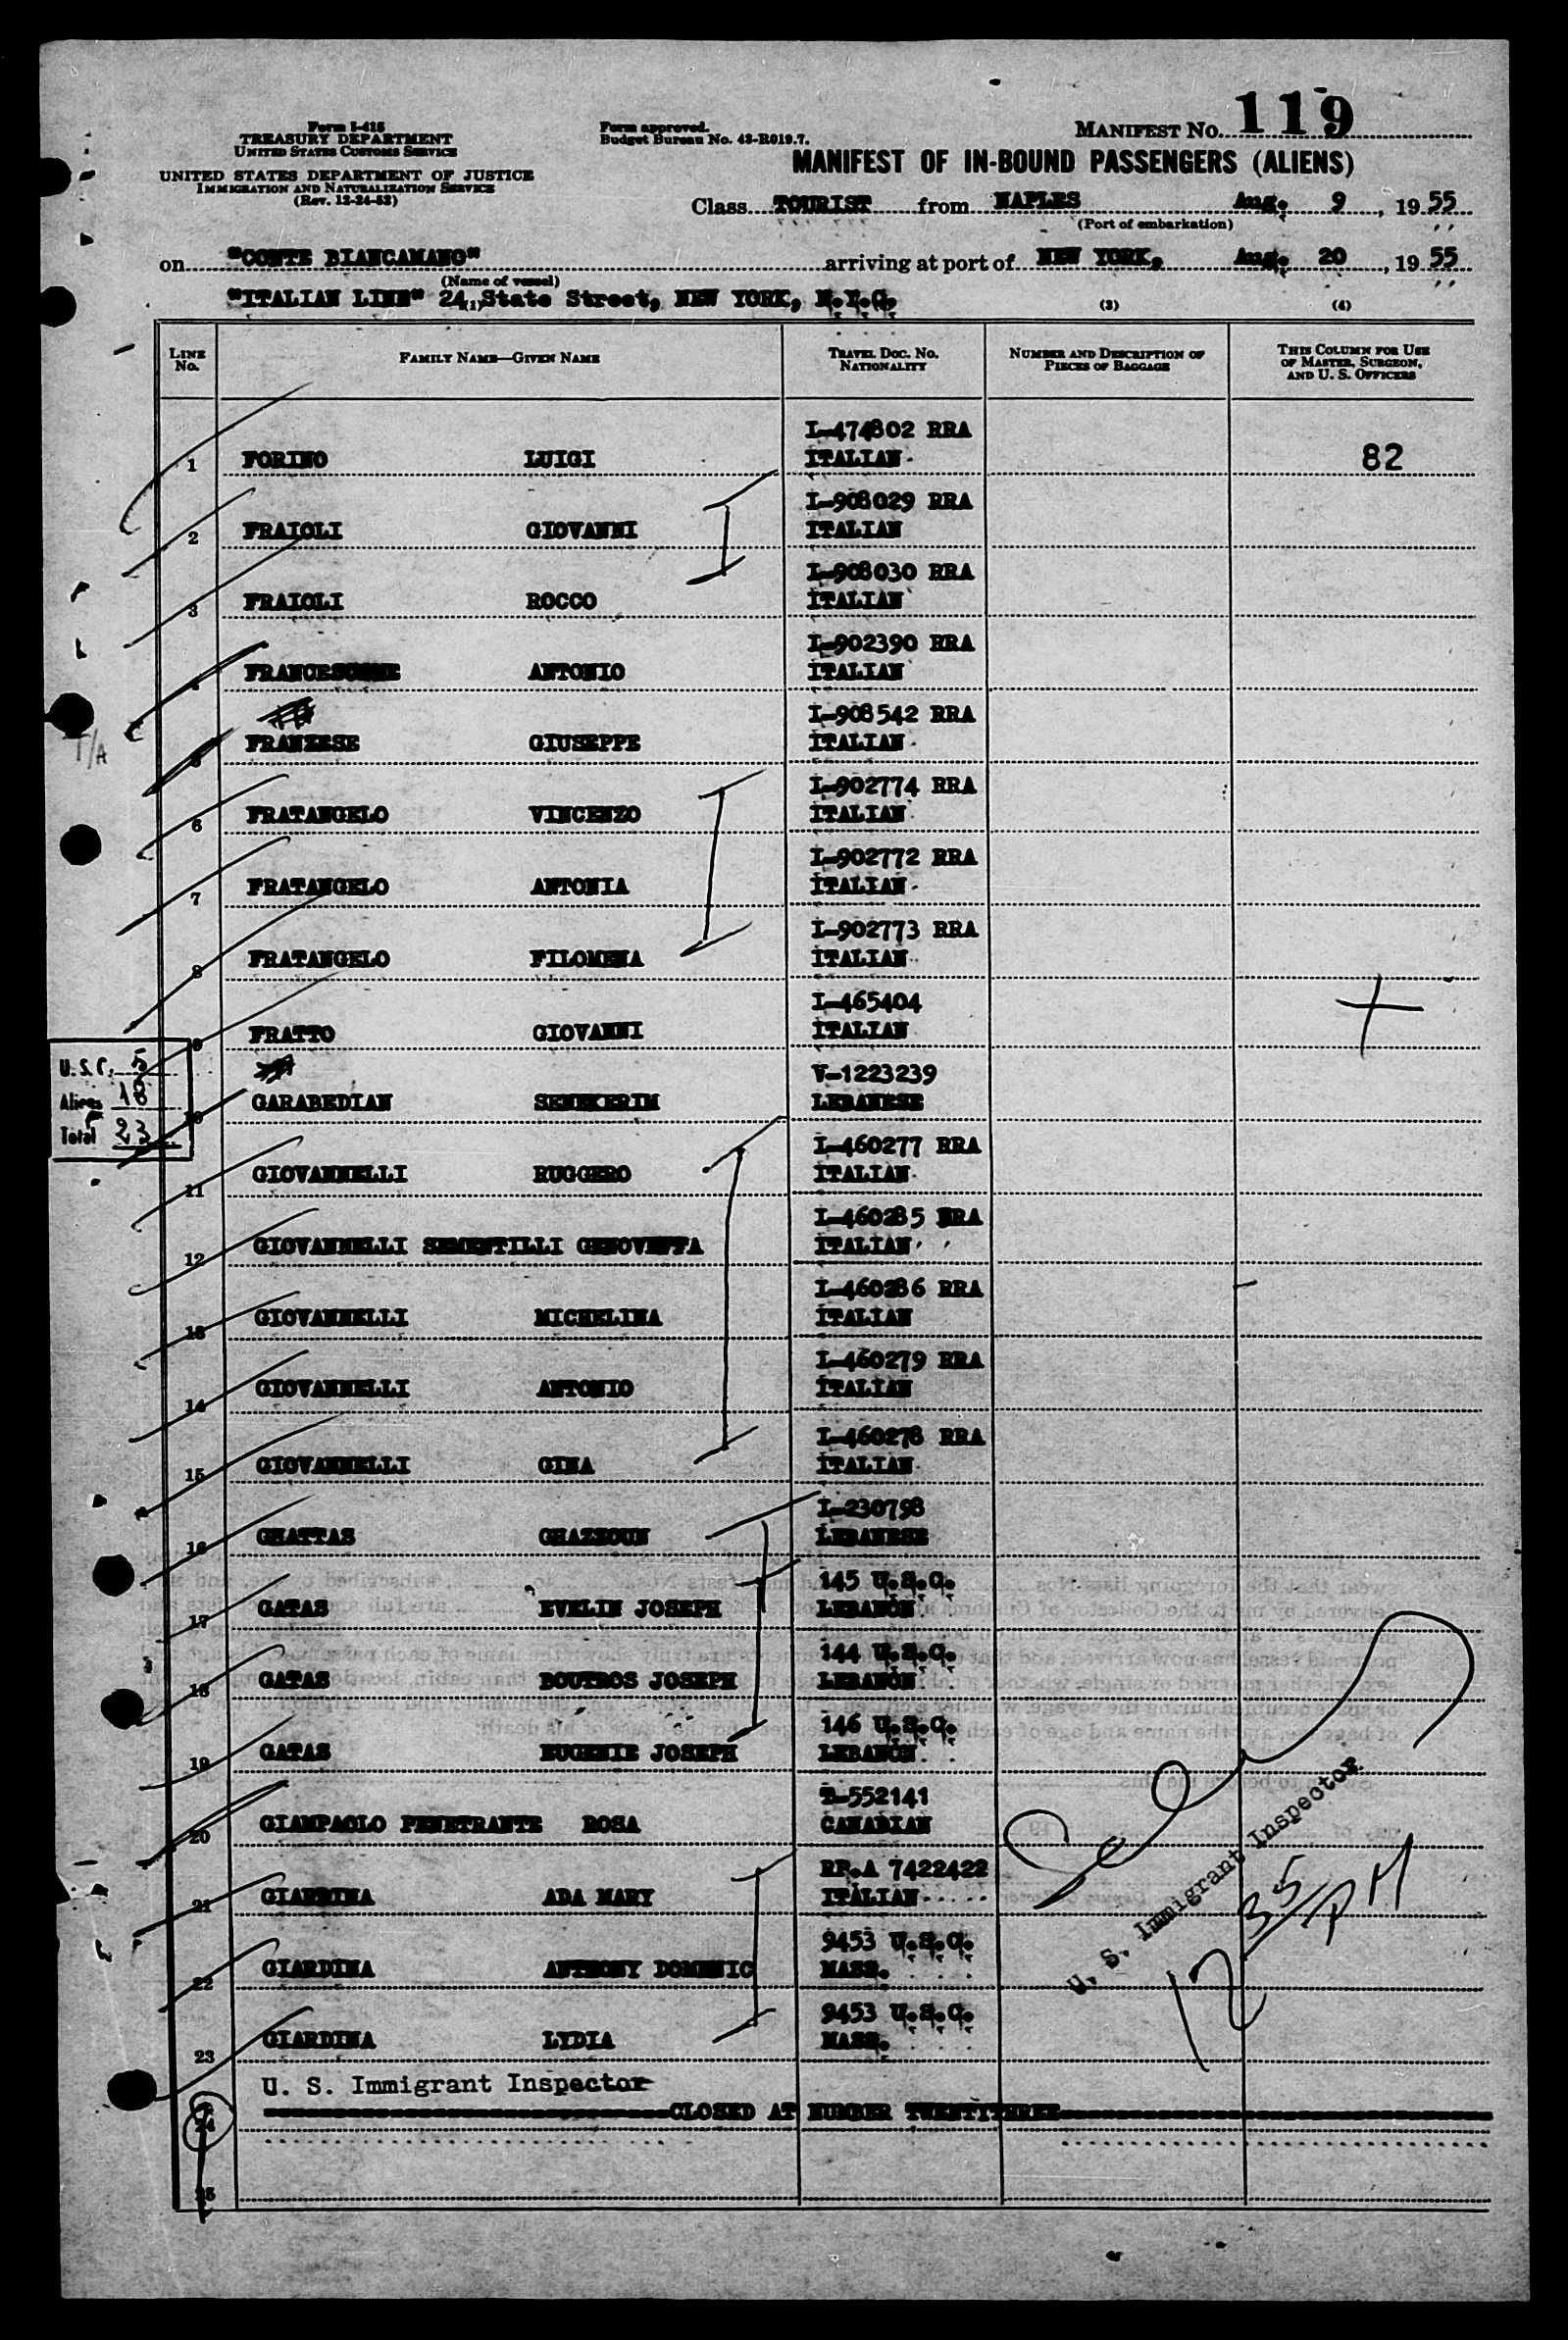 Form I-415
TREASURY DEPARTMENT
UNITED STATES CUSTOMS SERVICE
UNITED STATES DEPARTMENT OF JUSTICE
IMMIGRATION AND NATURALIZATION SERVICE
(Rev. 12-24-52)
Form approved.
Budget Bureau No. 43-R019.7.
MANIFEST NO. 119
MANIFEST OF IN-BOUND PASSENGERS (ALIENS)
Class TOURIST from NAPLES Aug. 9, 1955
(Port of embarkation)
on "CONTE BIANCAMANO" arriving at port of NEW YORK, Aug. 20, 1955
(Name of vessel)
"ITALIAN LINE" 24, State Street, NEW YORK, N.Y.C.
(1) (3) (4)
LINE NO. FAMILY NAME—GIVEN NAME TRAVEL DOC. NO. NATIONALITY NUMBER AND DESCRIPTION OF PIECES OF BAGGAGE THIS COLUMN FOR USE OF MASTER, SURGEON, AND U. S. OFFICERS
I-474802 RRA
1 FORINO LUIGI ITALIAN 82
I-908029 RRA
2 FRAIOLI GIOVANNI ITALIAN
I-908030 RRA
3 FRAIOLI ROCCO ITALIAN
I-902390 RRA
4 ANTONIO ITALIAN
I-908542 RRA
5 FRANZESE GIUSEPPE ITALIAN
T/A
I-902774 RRA
6 FRATANGELO VINCENZO ITALIAN
I-902772 RRA
7 FRATANGELO ANTONIA ITALIAN
I-902773 RRA
8 FRATANGELO FILOMENA ITALIAN
I-465404
9 FRATTO GIOVANNI ITALIAN
U.S.C. 5
Aliens 18
Total 23
V-1223239
10 GARABEDIAN SENEKERIM LEBANESE
I-460277 RRA
11 GIOVANNELLI RUGGERO ITALIAN
I-460285 RRA
12 GIOVANNELLI SEMENTILLI GENOVEFFA ITALIAN
I-460286 RRA
13 GIOVANNELLI MICHELINA ITALIAN
I-460279 RRA
14 GIOVANNELLI ANTONIO ITALIAN
I-460278 RRA
15 GIOVANNELLI GINA ITALIAN
I-230798
16 GHATTAS GHAZZOUN LEBANESE
145 U.S.C.
17 GATAS EVELIN JOSEPH LEBANON
144 U.S.C.
18 GATAS BOUTROS JOSEPH LEBANON
146 U.S.C.
19 GATAS EUGENIE JOSEPH LEBANON
552141
20 GIAMPAOLO PENETRANTE ROSA CANADIAN
RP.A 7422422
21 GIARDINA ADA MARY ITALIAN
9453 U.S.C.
22 GIARDINA ANTHONY DOMENIC MASS.
9453 U.S.C.
23 GIARDINA LYDIA MASS.
U. S. Immigrant Inspector
12 35 PM
U. S. Immigrant Inspector
24 CLOSED AT NUMBER TWENTYTHREE
25